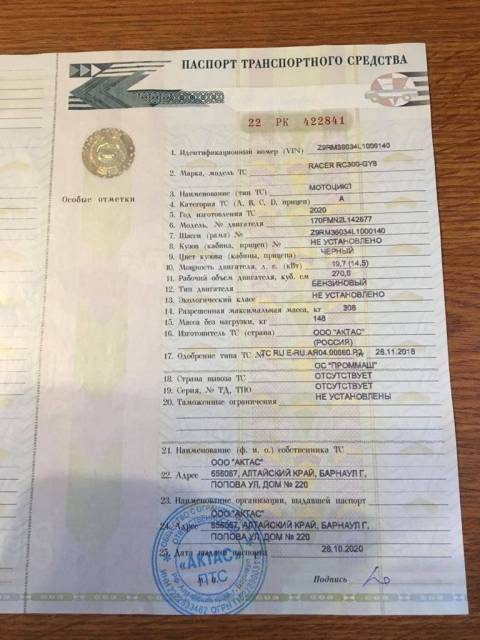 ПАСПОРТ ТРАНСПОРТНОГО СРЕДСТВА
22 РК 422841
Особые отметки
1. Идентификационный номер (VIN) Z9RM36034L1000140
2. Марка, модель ТС RACER RC300-GY8
3. Наименование (тип ТС) МОТОЦИКЛ
4. Категория ТС (A, B, C, D, прицеп) А
5. Год изготовления ТС 2020
6. Модель, № двигателя 170FMN2L142677
7. Шасси (рама) № Z9RM36034L1000140
8. Кузов (кабина, прицеп) № НЕ УСТАНОВЛЕНО
9. Цвет кузова (кабины, прицепа) ЧЕРНЫЙ
10. Мощность двигателя, л. с. (кВт) 19,7 (14,5)
11. Рабочий объем двигателя, куб. см 270,0
12. Тип двигателя БЕНЗИНОВЫЙ
13. Экологический класс НЕ УСТАНОВЛЕНО
14. Разрешенная максимальная масса, кг 308
15. Масса без нагрузки, кг 148
16. Изготовитель ТС (страна) ООО "АКТАС"
(РОССИЯ)
17. Одобрение типа ТС № ТС RU E-RU.AR04.00060.P2 26.11.2018
ОС "ПРОММАШ"
18. Страна вывоза ТС ОТСУТСТВУЕТ
19. Серия, № ТД, ТПО ОТСУТСТВУЕТ
20. Таможенные ограничения НЕ УСТАНОВЛЕНЫ
21. Наименование (ф. и. о.) собственника ТС
ООО "АКТАС"
22. Адрес 656067, АЛТАЙСКИЙ КРАЙ, БАРНАУЛ Г,
ПОПОВА УЛ, ДОМ № 220
23. Наименование организации, выдавшей паспорт
ООО "АКТАС"
24. Адрес 656067, АЛТАЙСКИЙ КРАЙ, БАРНАУЛ Г,
ПОПОВА УЛ, ДОМ № 220
25. Дата выдачи паспорта 28.10.2020
М. п. Подпись
«АКТАС»
ПТС